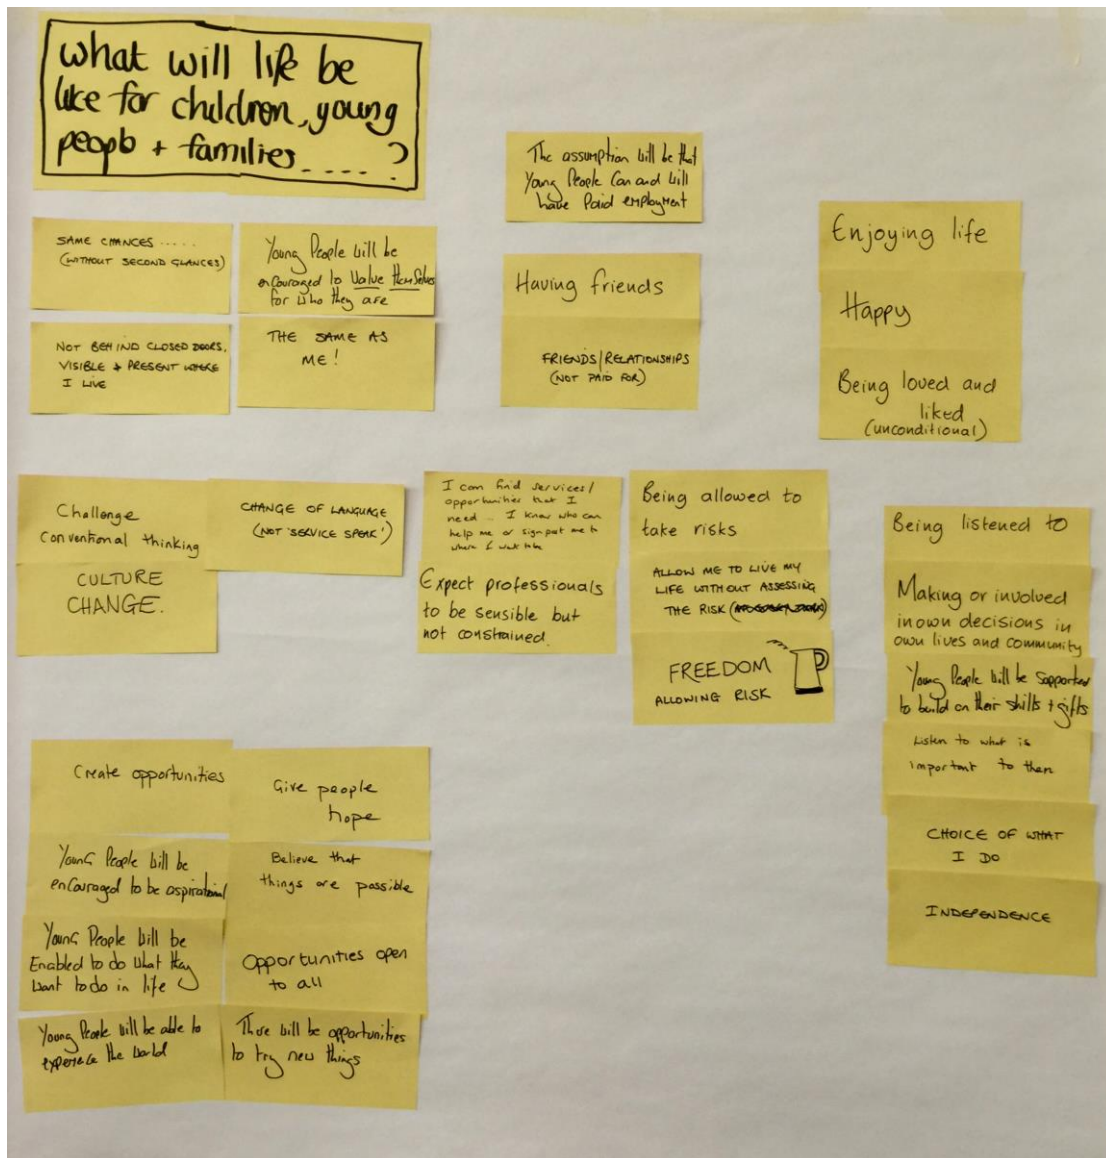 what will life be
like for children, young
people + families.....?
The assumption will be that
Young People Can and will
have Paid employment
SAME CHANCES.....
(WITHOUT SECOND GLANCES)
Young People will be
encouraged to value themselves
for who they are
NOT BEHIND CLOSED DOORS,
VISIBLE + PRESENT WHERE
I LIVE
THE SAME AS
ME!
Having friends
FRIENDS/RELATIONSHIPS
(NOT PAID FOR)
Enjoying life
Happy
Being loved and
liked
(unconditional)
Challenge
conventional thinking
CULTURE
CHANGE.
CHANGE OF LANGUAGE
(NOT 'SERVICE SPEAK')
I can find services/
opportunities that I
need... I know who can
help me or signpost me to
where I want to be
Expect professionals
to be sensible but
not constrained.
Being allowed to
take risks
ALLOW ME TO LIVE MY
LIFE WITHOUT ASSESSING
THE RISK
FREEDOM
ALLOWING RISK
Being listened to
Making or involved
in own decisions in
own lives and community
Young People will be supported
to build on their skills + gifts
Listen to what is
important to them
CHOICE OF WHAT
I DO
INDEPENDENCE
Create opportunities
Give people
hope
Young People will be
encouraged to be aspirational
Believe that
things are possible
Young People will be
Enabled to do what they
want to do in life
Opportunities open
to all
Young People will be able to
experience the world
There will be opportunities
to try new things